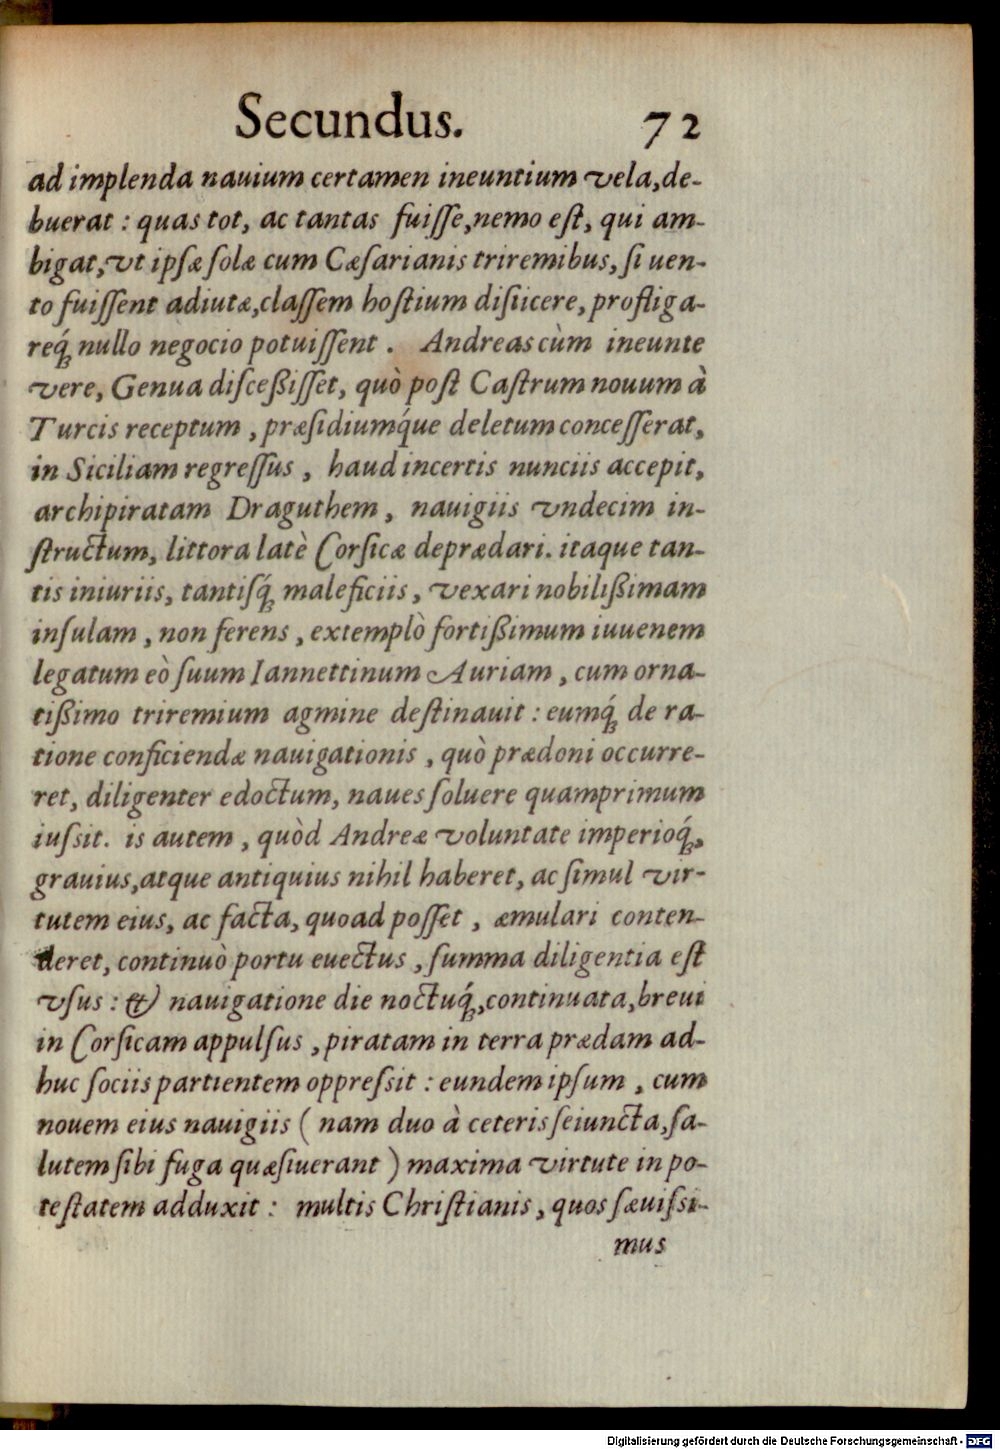 Secundus. 72
ad implenda nauium certamen ineuntium vela, de-
buerat : quas tot, ac tantas fuiſſe, nemo eſt, qui am-
bigat, vt ipſæ ſolæ cum Cæſarianis triremibus, ſi uen-
to fuiſſent adiutæ, claſſem hoſtium diſiicere, profliga-
req́ꝫ nullo negocio potuiſſent . Andreas cùm ineunte
vere, Genua diſceßiſſet, quò poſt Caſtrum nouum à
Turcis receptum , præſidiumq́ue deletum conceſſerat,
in Siciliam regreſſus , haud incertis nunciis accepit,
archipiratam Draguthem , nauigiis vndecim in-
ſtructum, littora latè Corſicæ deprædari. itaque tan-
tis iniuriis, tantiſq́ꝫ maleficiis , vexari nobilißimam
inſulam , non ferens , extemplò fortißimum iuuenem
legatum eò ſuum Iannettinum Auriam , cum orna-
tißimo triremium agmine deſtinauit : eumq́ꝫ de ra-
tione conficiendæ nauigationis , quò prædoni occurre-
ret, diligenter edoctum, naues ſoluere quamprimum
iuſsit. is autem , quòd Andreæ voluntate imperioq́ꝫ,
grauius, atque antiquius nihil haberet, ac ſimul vir-
tutem eius, ac facta, quoad poſſet , æmulari conten-
deret, continuò portu euectus , ſumma diligentia eſt
vſus : & nauigatione die noctuq́ꝫ, continuata, breui
in Corſicam appulſus , piratam in terra prædam ad-
huc ſociis partientem oppreſsit : eundem ipſum , cum
nouem eius nauigiis ( nam duo à ceteris ſeiuncta, ſa-
lutem ſibi fuga quæſiuerant ) maxima virtute in po-
teſtatem adduxit : multis Chriſtianis , quos ſæuiſsi-
mus
Digitalisierung gefördert durch die Deutsche Forschungsgemeinschaft - DFG